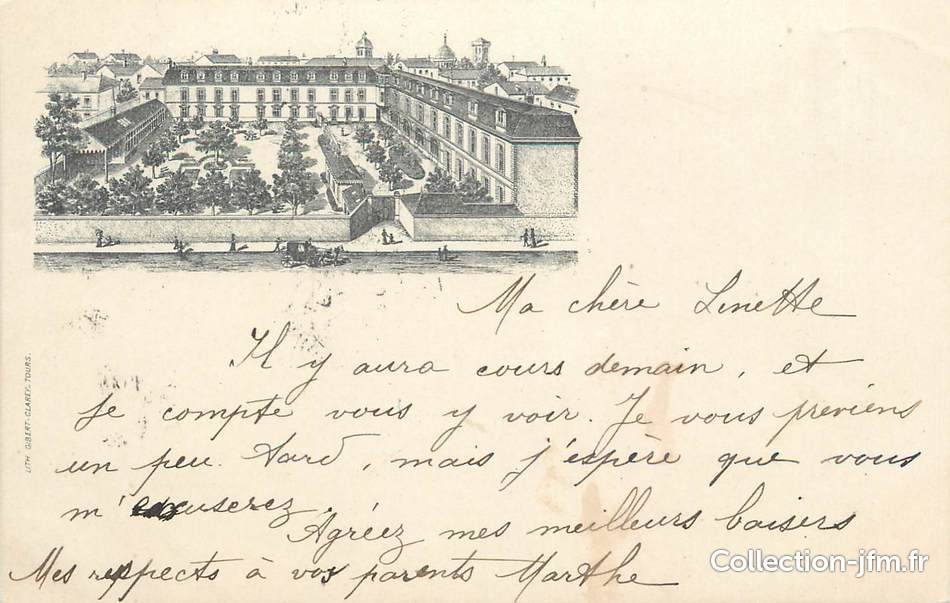 Ma chère Linette
Il y aura cours demain, et
je compte vous y voir. Je vous préviens
un peu tard, mais j'espère que vous
m'excuserez.
Agréez mes meilleurs baisers
Mes respects à vos parents Marthe
LITH. GIBERT-CLAREY, TOURS.
Collection-jfm.fr